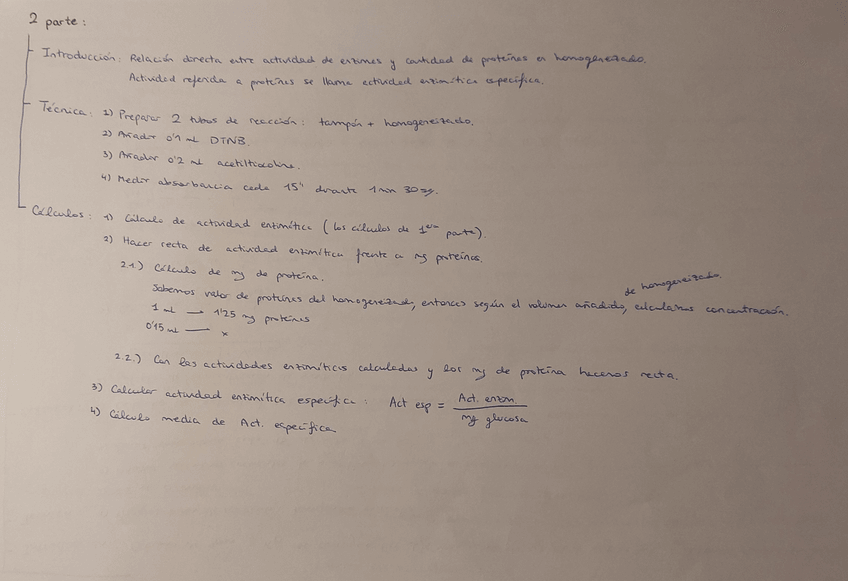 2 parte:
Introducción: Relación directa entre actividad de enzimas y cantidad de proteínas en homogeneizado.
Actividad referida a proteínas se llama actividad enzimática específica.
Técnica: 1) Preparar 2 tubos de reacción: tampón + homogeneizado.
2) Añadir 0'1 mL DTNB.
3) Añadir 0'2 mL acetiltiocolina.
4) Medir absorbancia cada 15" durante 1 min 30 sg.
Cálculos: 1) Cálculo de actividad enzimática (los cálculos de 1era parte).
2) Hacer recta de actividad enzimática frente a mg proteínas.
2.1.) Cálculo de mg de proteína.
de homogeneizado.
Sabemos valor de proteínas del homogeneizado, entonces según el volumen añadido, calculamos concentración.
1 mL → 1'25 mg proteínas
0'15 mL — x
2.2.) Con las actividades enzimáticas calculadas y los mg de proteína hacemos recta.
3) Calcular actividad enzimática específica: Act esp = Act. enzm. / mg glucosa
4) Cálculo media de Act. específica